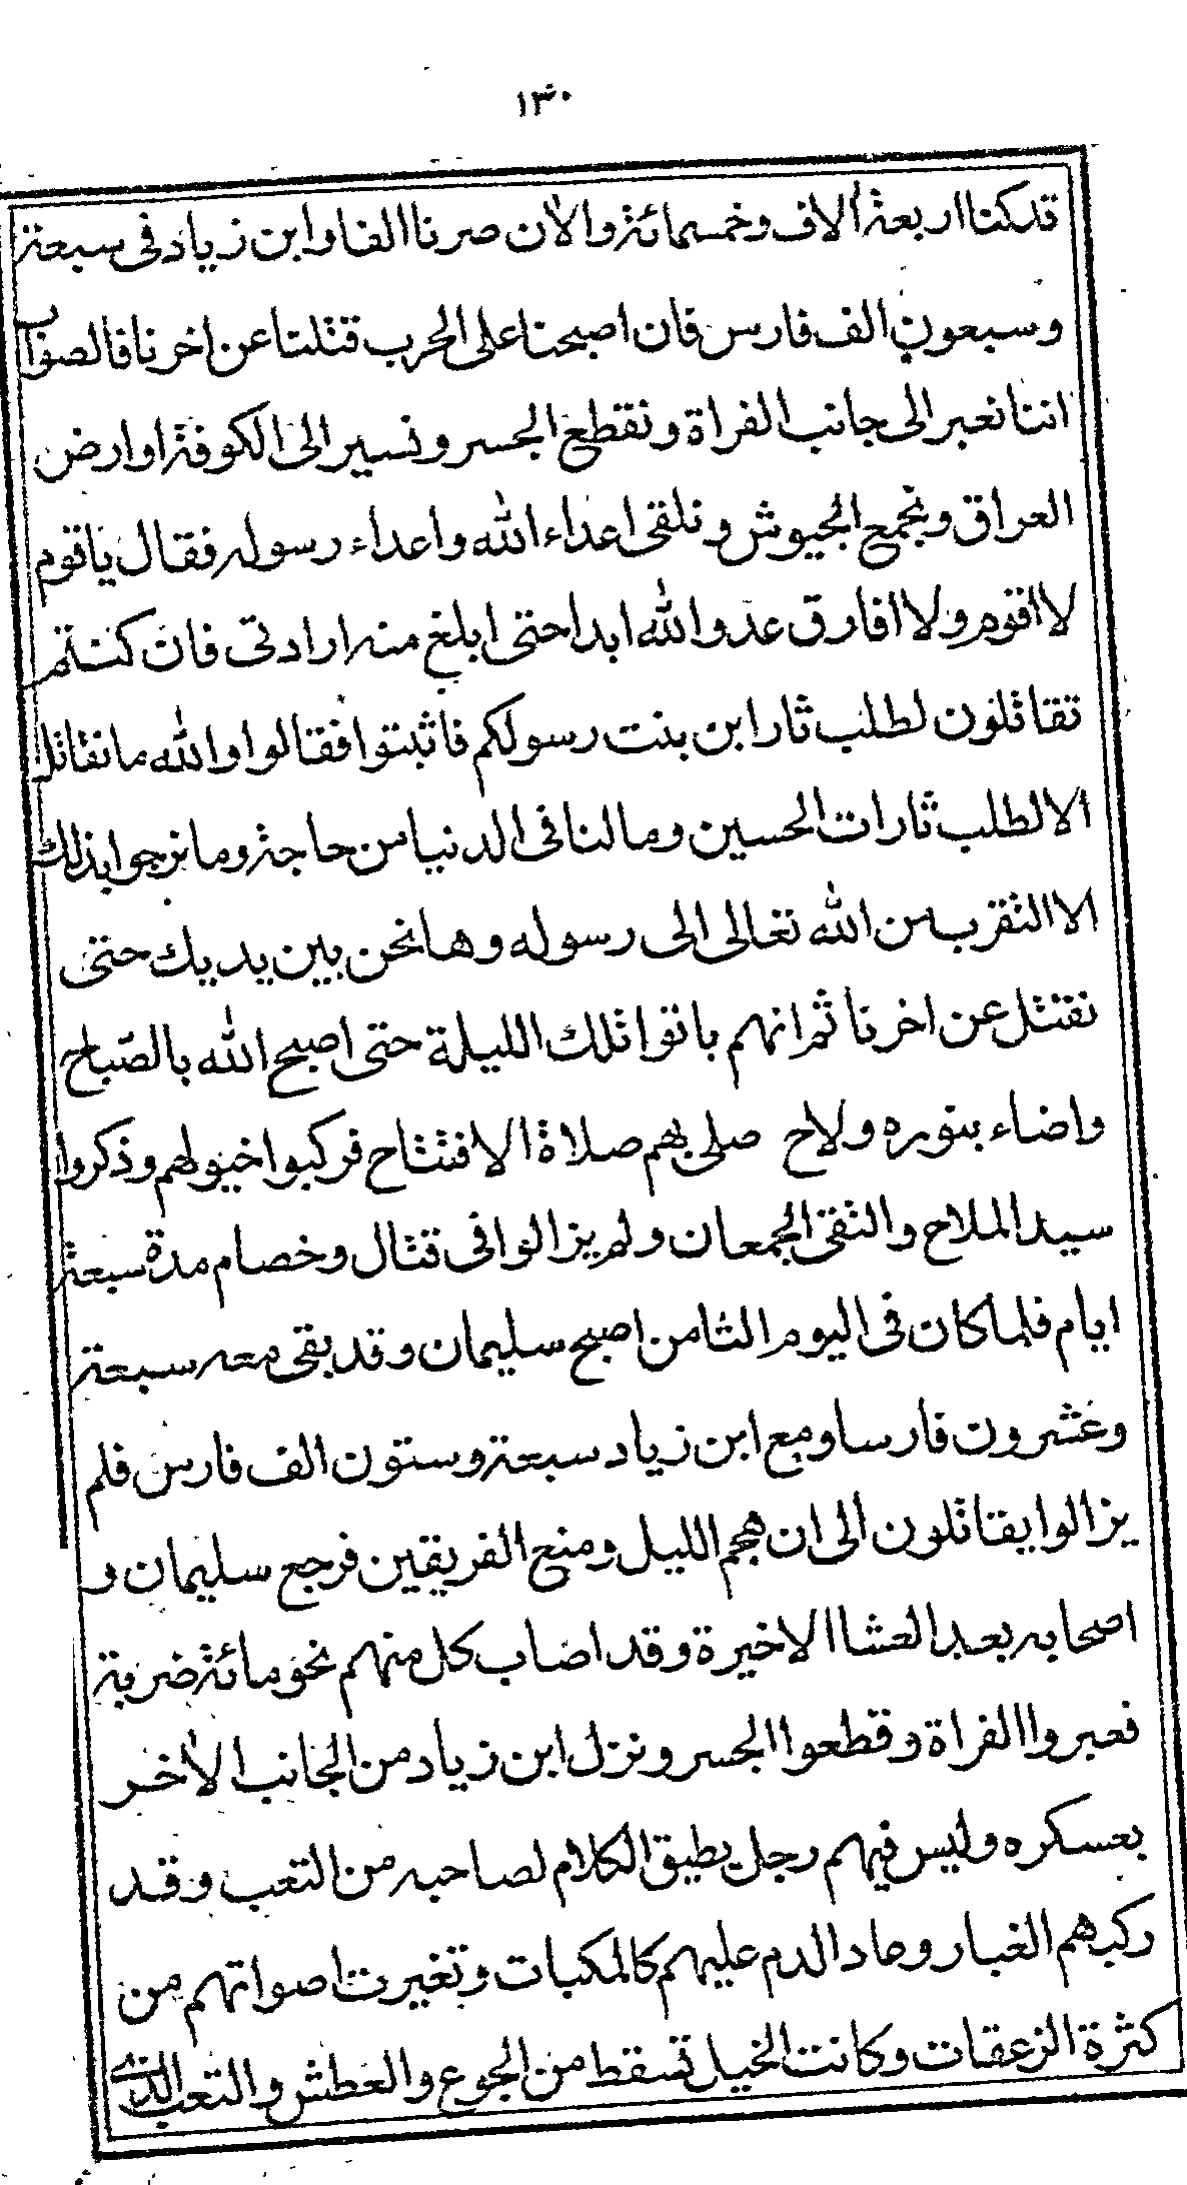 ١٣٠
قد كنا اربعة الاف وخمسمائة والان صرنا الفا وابن زياد فى سبعة
وسبعون الف فارس فان اصبحنا على الحرب قتلنا عن اخرنا فالصواب
اننا نعبر الى جانب الفراة ونقطع الجسر ونسير الى الكوفة او ارض
العراق ونجمع الجيوش ونلقى اعداء الله واعداء رسوله فقال يا قوم
لا اقوم ولا افارق عدو الله ابدا حتى ابلغ منه ارادتى فان كنتم
تقاتلون لطلب ثار ابن بنت رسولكم فاثبتوا فقالوا والله ما نقاتل
الا لطلب ثارات الحسين وما لنا فى الدنيا من حاجة وما نرجوا بذلك
الا التقرب من الله تعالى الى رسوله وها نحن بين يديك حتى
نقتتل عن اخرنا ثم انهم باتوا تلك الليلة حتى اصبح الله بالصباح
واضاء بنوره ولاح صلى بهم صلاة الافتتاح فركبوا خيولهم وذكروا
سيد الملاح والتقى الجمعان ولم يزالوا فى قتال وخصام مدة سبعة
ايام فلما كان فى اليوم الثامن اصبح سليمان وقد بقى معه سبعة
وعشرون فارسا ومع ابن زياد سبعة وستون الف فارس فلم
يزالوا يقاتلون الى ان هجم الليل ومنع الفريقين فرجع سليمان و
اصحابه بعد العشا الاخيرة وقد اصاب كل منهم نحو مائة ضربة
فعبروا الفراة وقطعوا الجسر ونزل ابن زياد من الجانب الاخر
بعسكره وليس فيهم رجل يطيق الكلام لصاحبه من التعب وقد
ركبهم الغبار وعاد الدم عليهم كالمكبات وتغيرت اصواتهم من
كثرة الزعقات وكانت الخيل تسقط من الجوع والعطش والتعب الذى